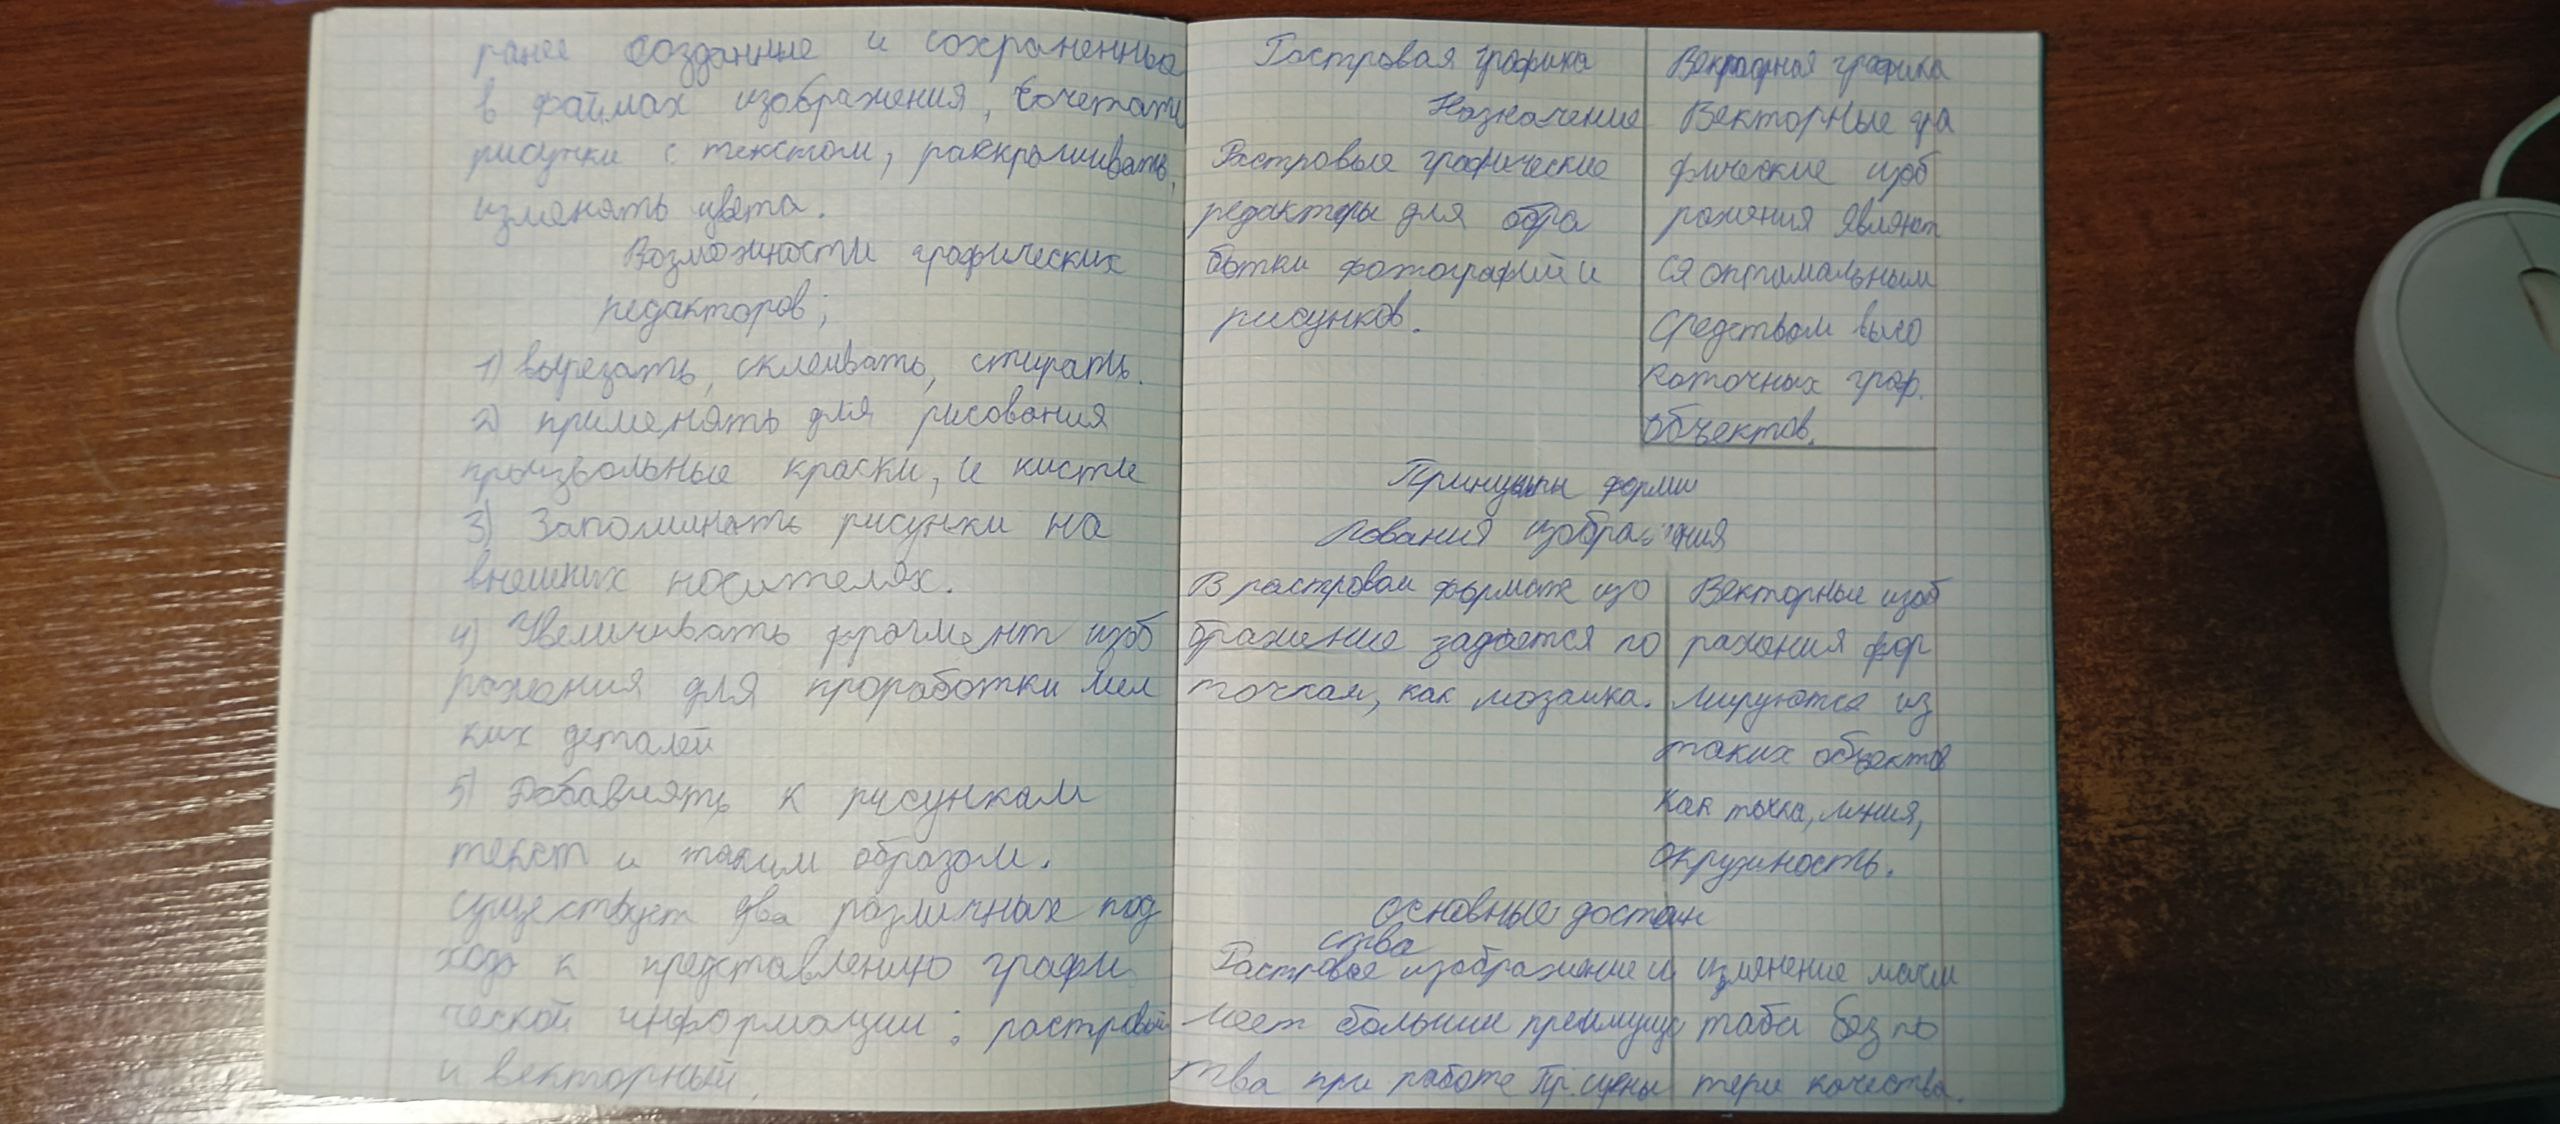 ранее созданные и сохраненные
в файлах изображения, сочетать
рисунки с текстом, раскрашивать,
изменять цвета.
Возможности графических
редакторов;
1) вырезать, склеивать, стирать.
2) применять для рисования
произвольные краски, и кисти
3) Запоминать рисунки на
внешних носителях.
4) Увеличивать фрагмент изоб
ражения для проработки мел
ких деталей
5) Добавлять к рисункам
текст и таким образом.
существует два различных под
хода к представлению графи
ческой информации: растровый
и векторный.
Растровая графика
Назначение
Растровые графические
редакторы для обра
ботки фотографий и
рисунков.
графика
Векторные гра
фические изоб
ражения являют
ся оптимальным
средством высо
коточных граф.
объектов.
Принципы форми
рования изображения
В растровом формате изо
бражение задается по
точкам, как мозаика.
Векторные изоб
ражения фор
мируются из
таких объектов
как точка, линия,
окружность.
основные достоин
ства
Растровое изображение и
меет большие преимущес
тва при работе
изменение масш
таба без по
тери качества.